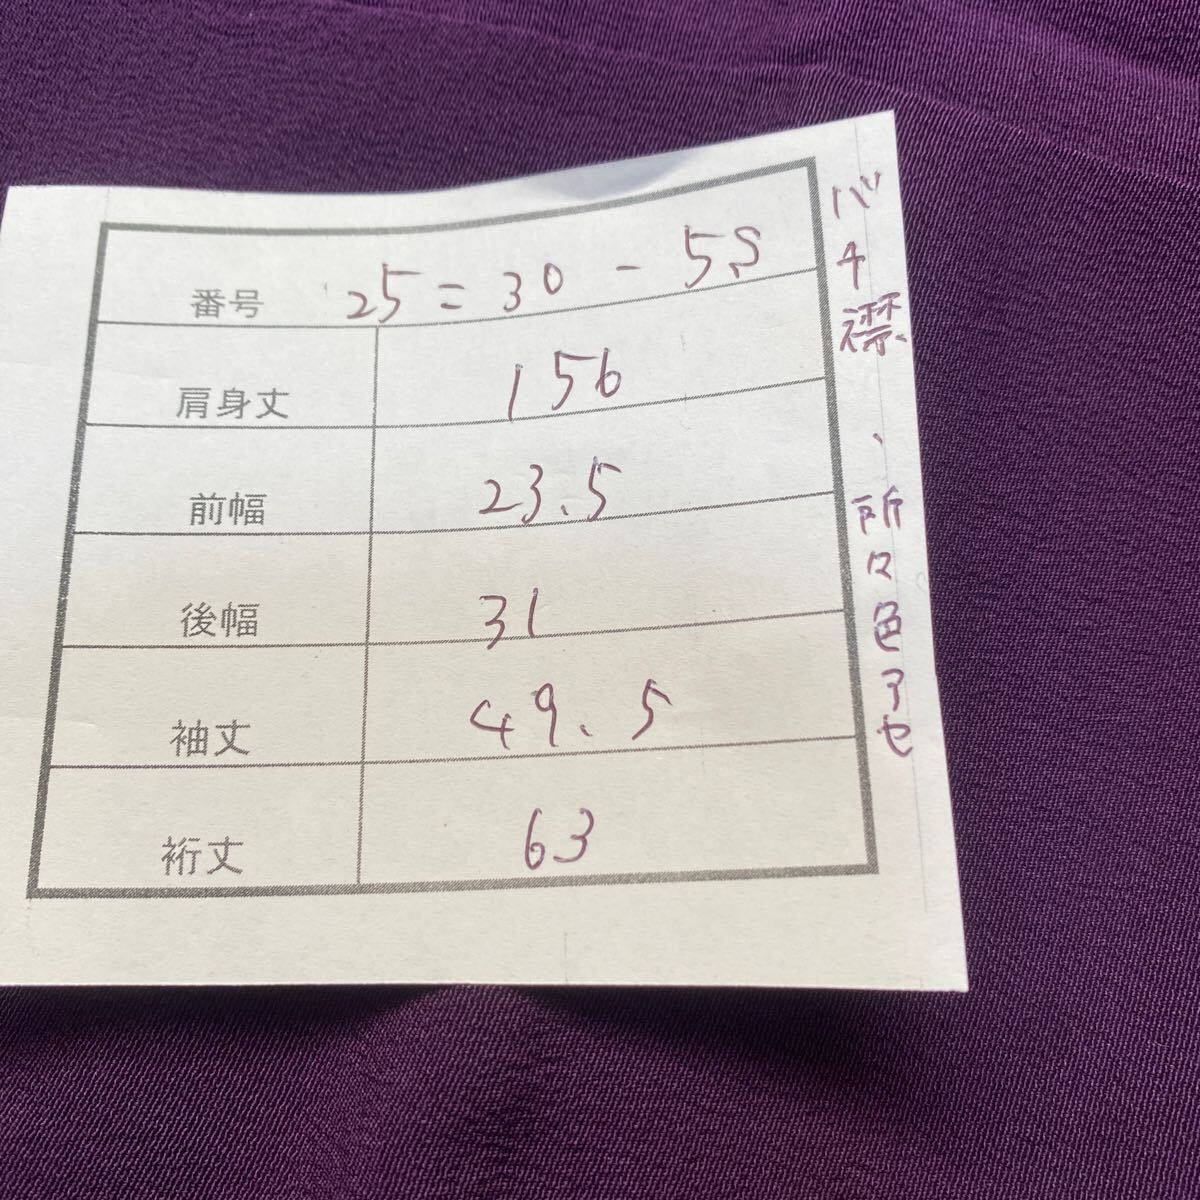 番号 25=30-5S
肩身丈 156
前幅 23.5
後幅 31
袖丈 49.5
裄丈 63
バチ襟、所々色アセ